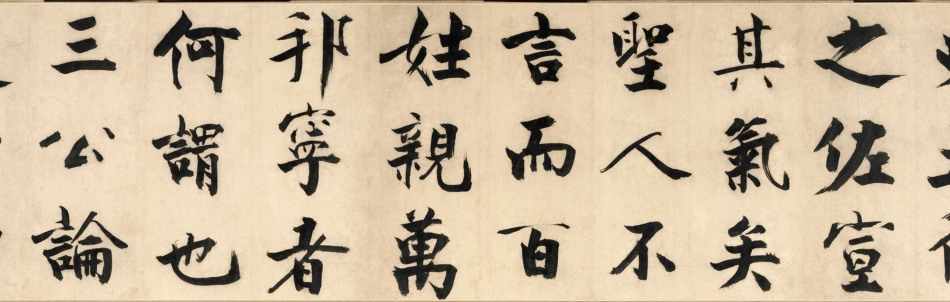 之佐宣
其氣矣
聖人不
言而百
姓親萬
邦寧者
何謂也
三公論